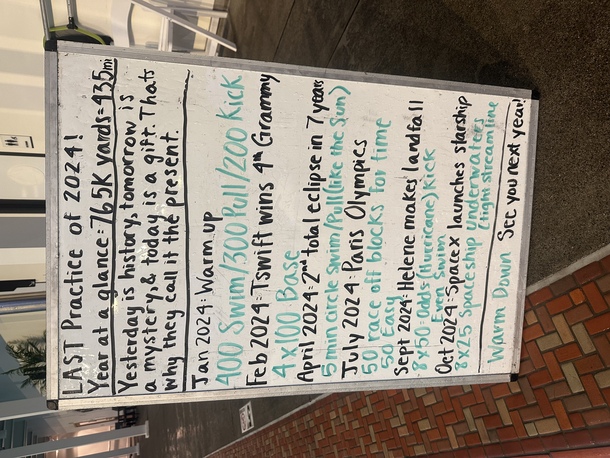 LAST Practice of 2024!
Year at a glance = 765K yards = 435mi
Yesterday is history, tomorrow is
a mystery, & today is a gift. Thats
why they call it the present.
Jan 2024: Warm up
400 Swim/300 Pull/200 Kick
Feb 2024: Tswift wins 4th Grammy
4x100 Base
April 2024: 2nd total eclipse in 7 years
5 min circle swim/Pull (like the Sun)
July 2024: Paris Olympics
50 race off blocks for time
50 Easy
Sept 2024: Helene makes landfall
8x50: Odds (Hurricane) Kick
Even Swim
Oct 2024: Space X launches starship
8x25 Spaceship underwaters
(tight streamline
Warm Down See you next year!